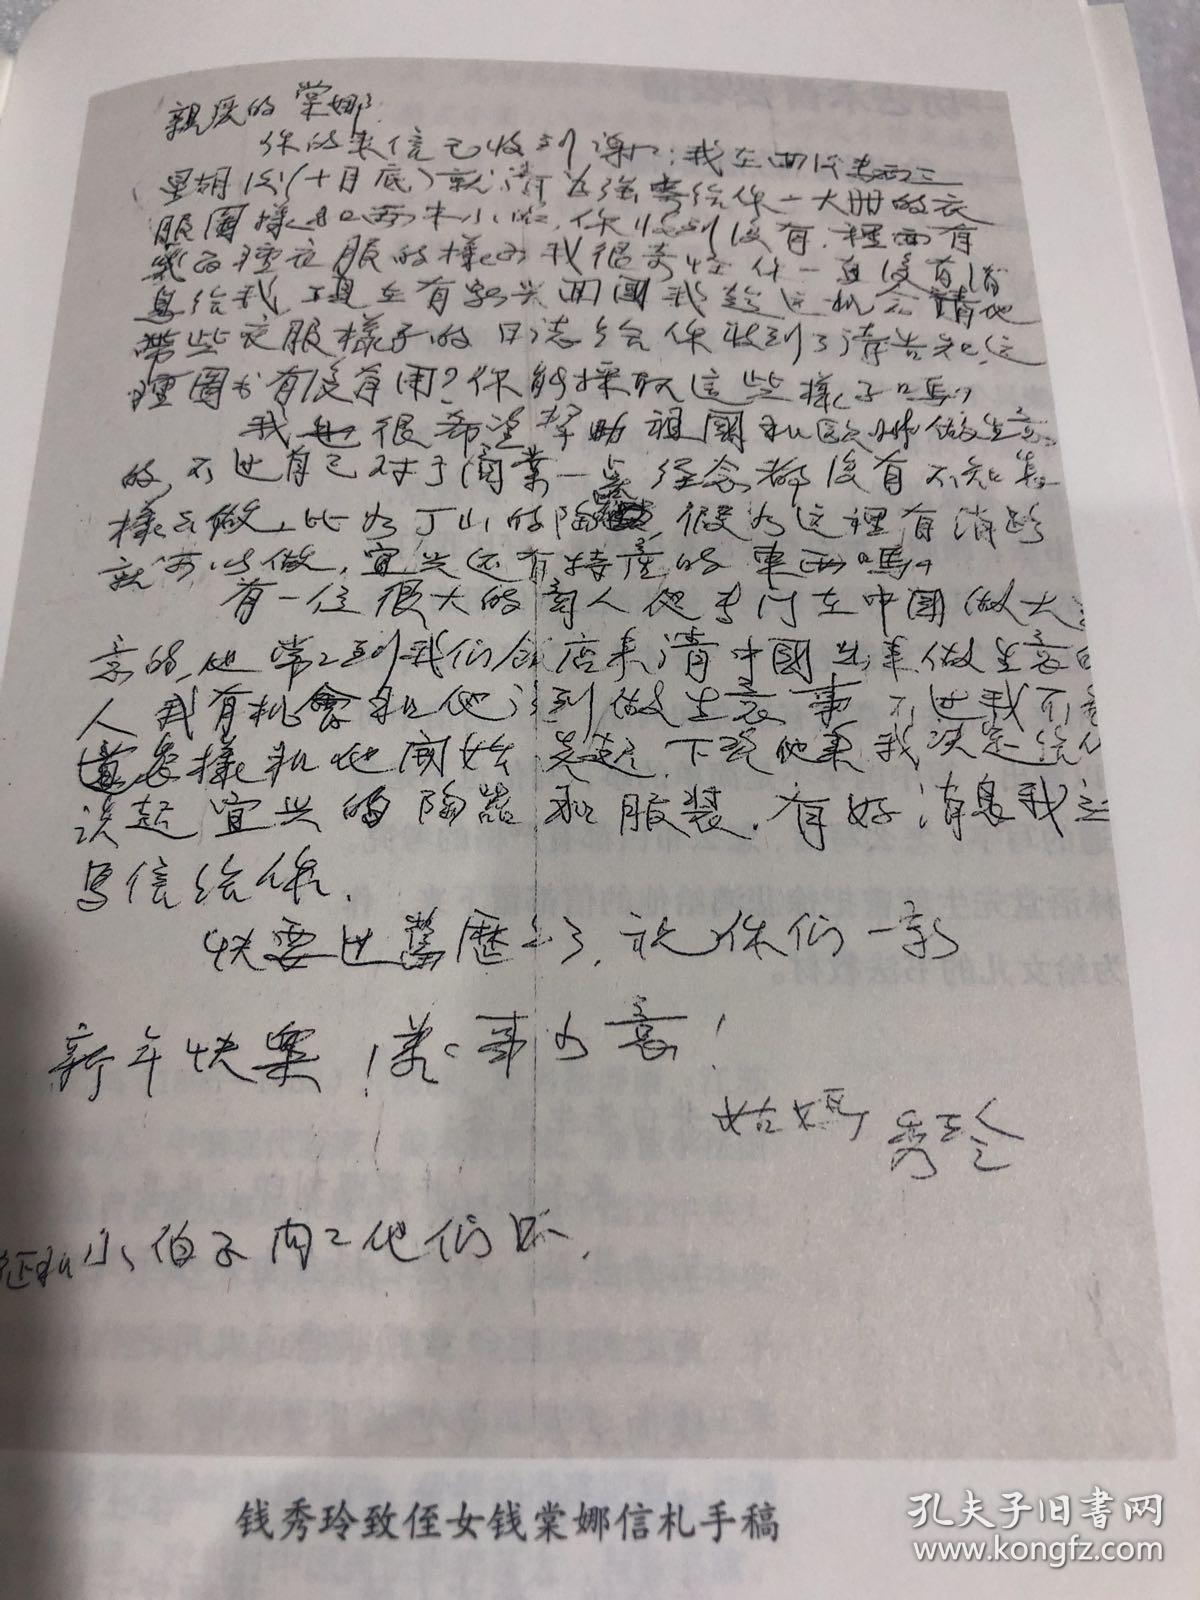 親愛的棠娜
你的来信已收到谢谢：我在西
(十月底)就请为强寄给你一大册的衣
服圖樣和两本小, 你收到没有, 裡面有
種衣服的樣子我很奇怪你一直没有消
息给我, 现在有回國我趁这机会請他
帶些衣服樣子的日志给你收到了请告知, 这
種圖书有没有用？你能採取这些樣子嗎？
我也很希望幫助祖國和歐洲做生意
的, 不过自己对于商業一点经念都没有不知怎
樣去做, 比为丁山的陶器, 假为这裡有消路
就可以做, 宜兴还有特產的東西嗎？
有一位很大的商人他专门在中國做大生
意的, 他常常到我们饭店来请中國出来做生意的
人我有机會和他谈到做生意事不过我不知
道怎樣和他開始谈起, 下次他来我决定给他
谈起宜兴的陶器和服装, 有好消息我立
写信给你.
快要过舊歷年了, 祝你们一家
新年快樂！萬事为意！
姑媽 秀玲
小伯子肉肉他们好.
钱秀玲致侄女钱棠娜信札手稿
孔夫子旧书网
www.kongfz.com